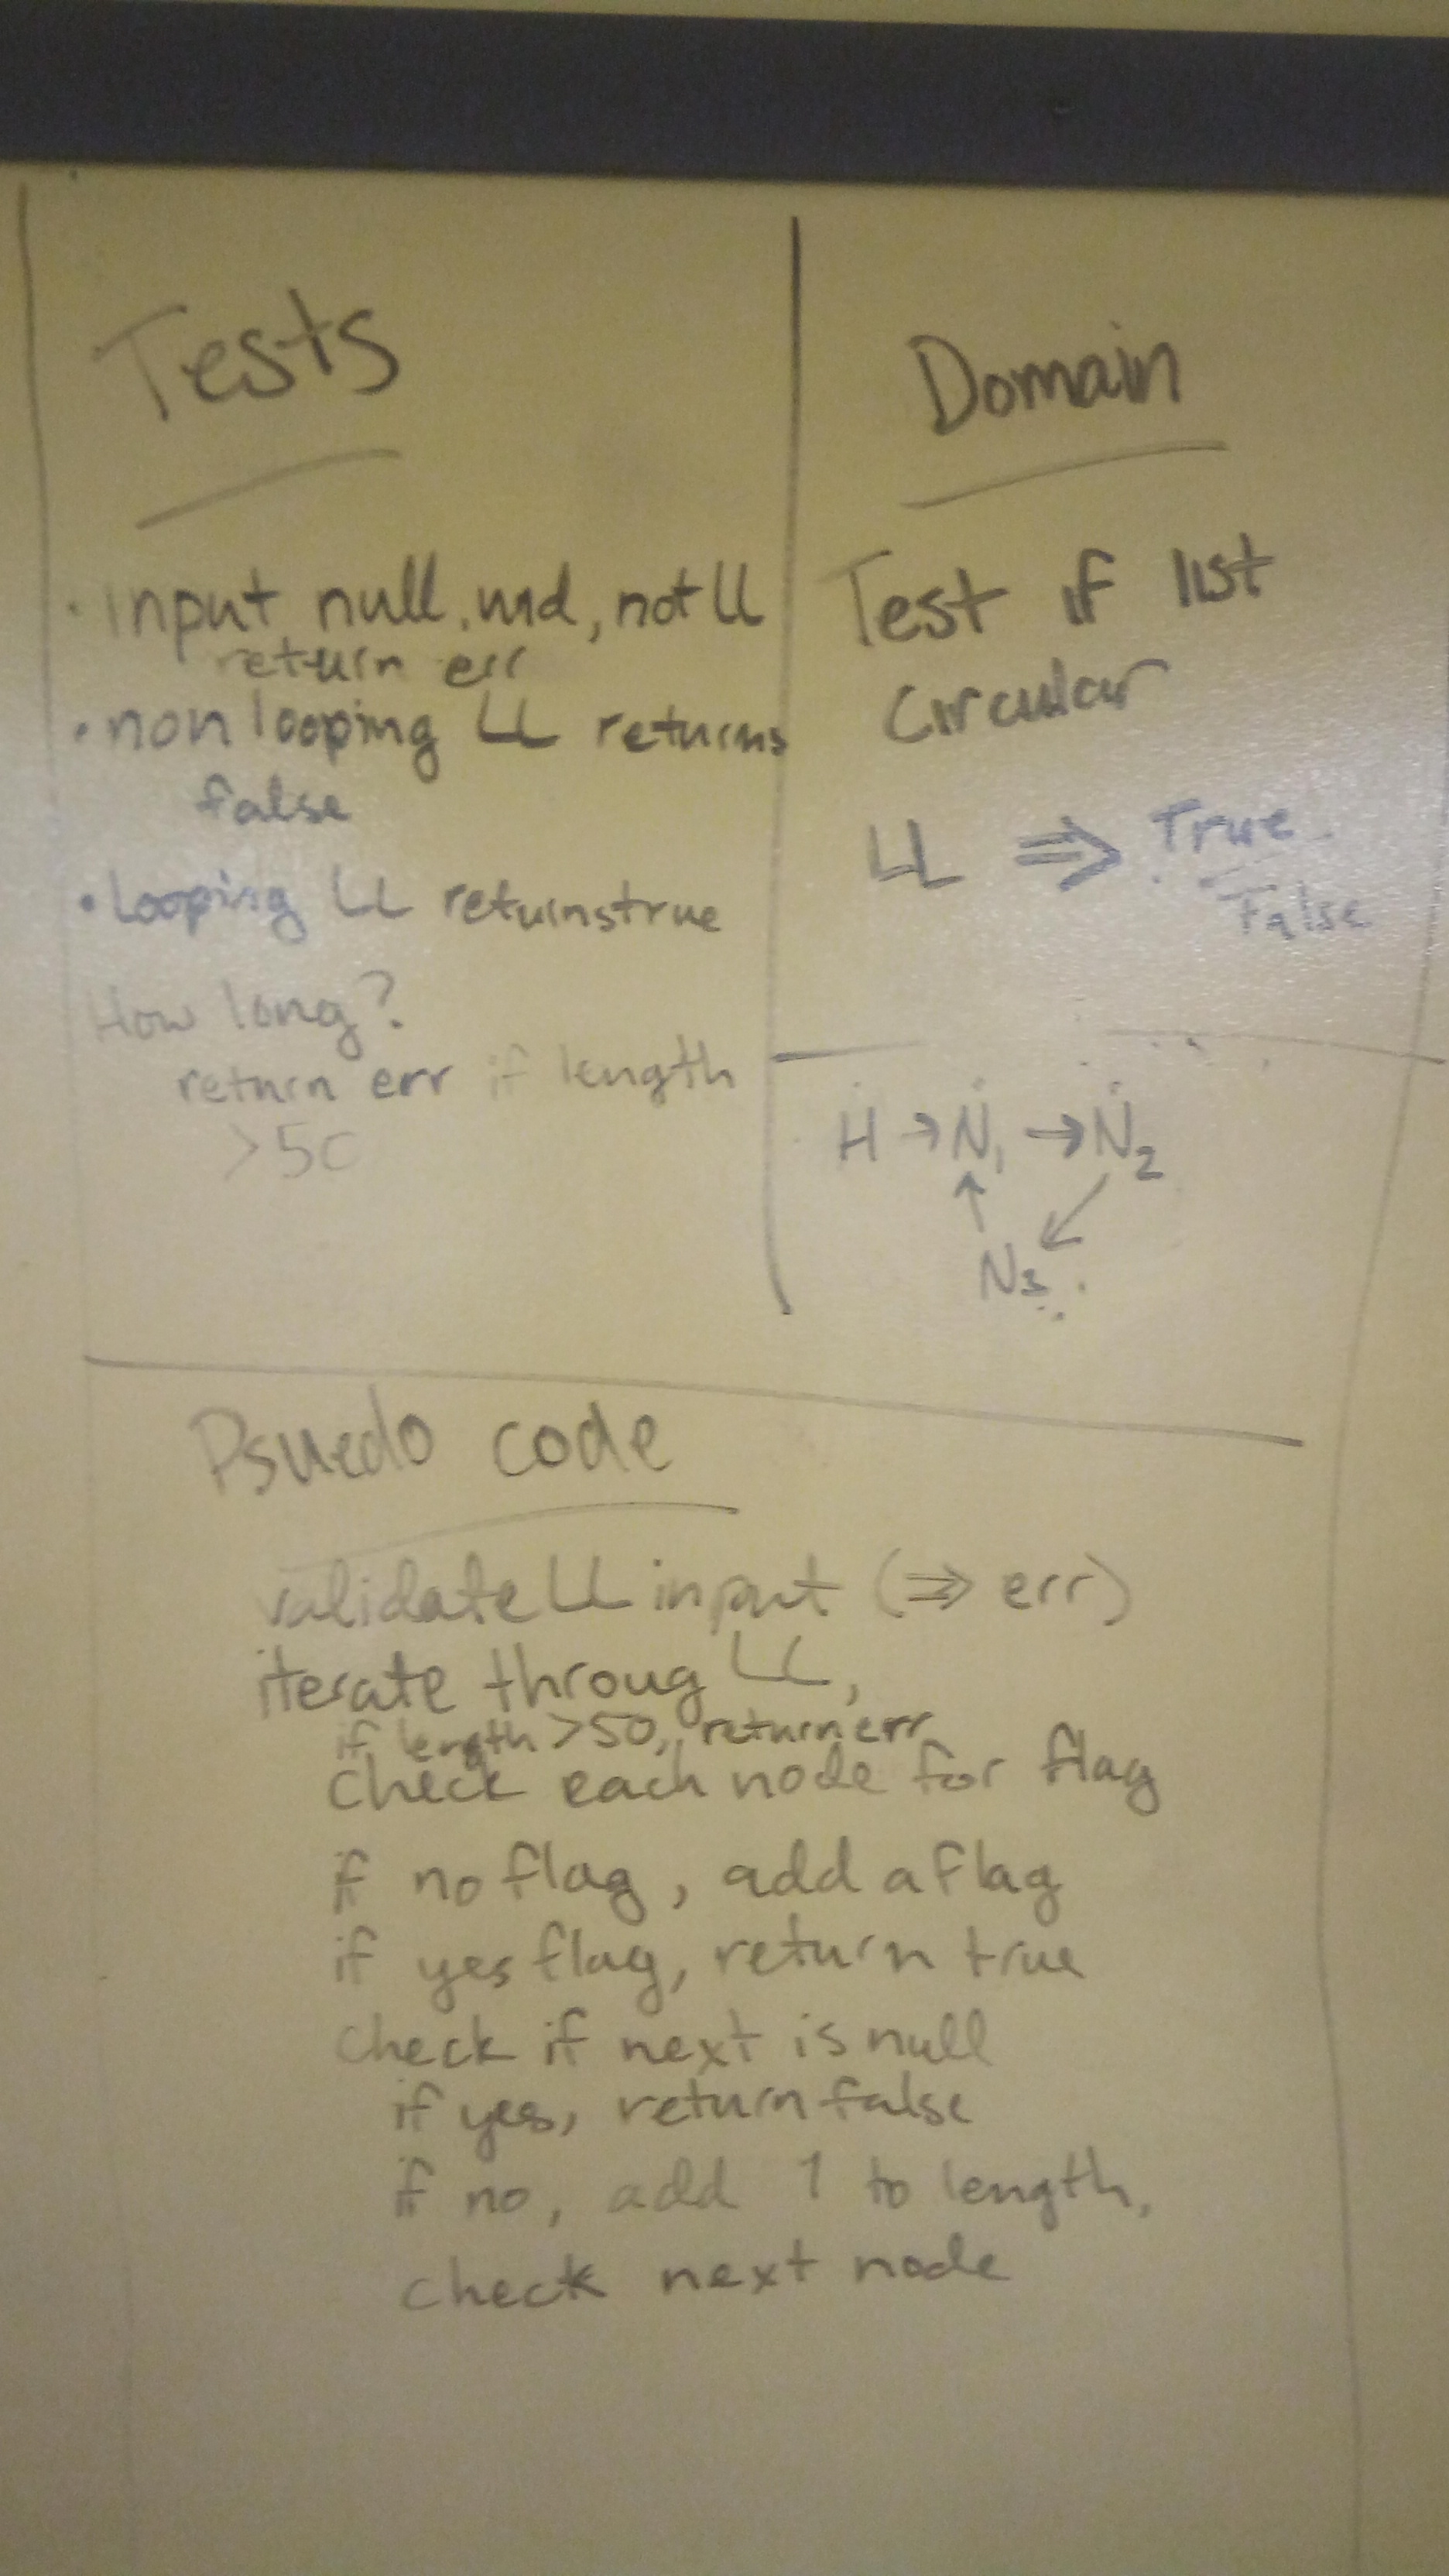 Tests
• input null, und, not LL
return err
• non looping LL returns
false
• Looping LL returns true
How long?
return err if length
>50
Domain
Test if list
Circular
LL ⇒ True
False
H → N1 → N2
N3
Psuedo code
validate LL input (⇒ err)
iterate throug LL,
if length >50, return err
check each node for flag
if no flag, add a flag
if yes flag, return true
check if next is null
if yes, return false
if no, add 1 to length,
check next node